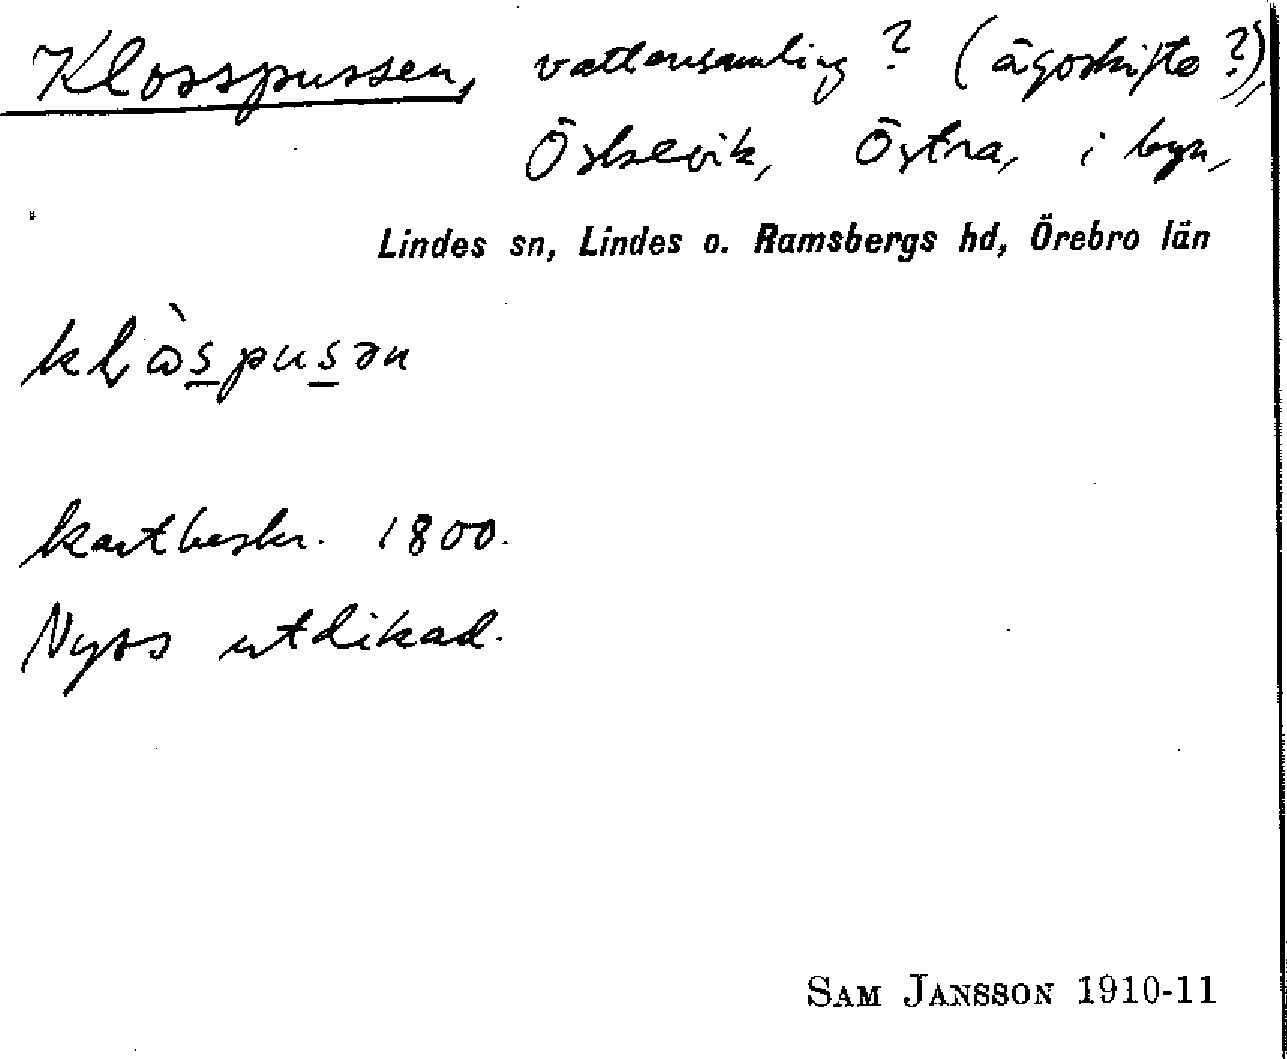 Klosspussen, vattensamling? (ägoskifte?),
Östra, i byn,
Lindes sn, Lindes o. Ramsbergs hd, Örebro län
kartbeskr. 1800.
Nyss utdikad.
SAM JANSSON 1910-11